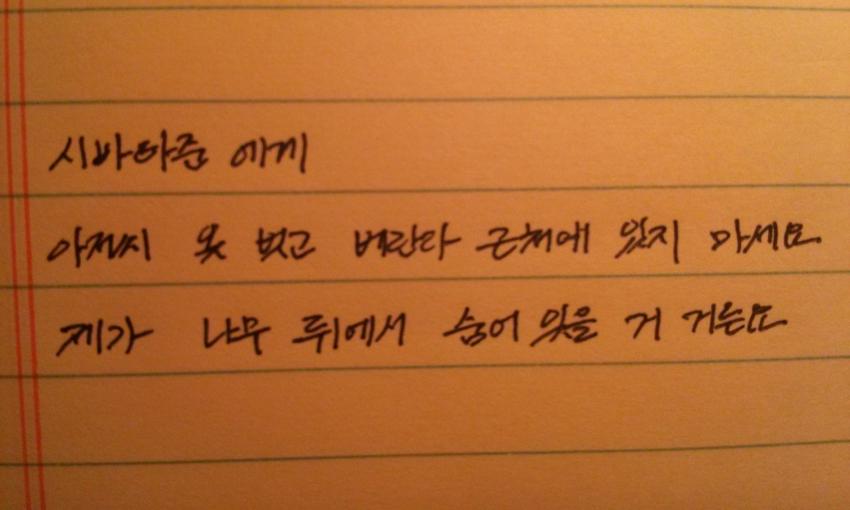 시바타준 에게
아저씨 옷 벗고 베란다 근처에 있지 마세요
제가 나무 뒤에서 숨어 있을 거 거든요